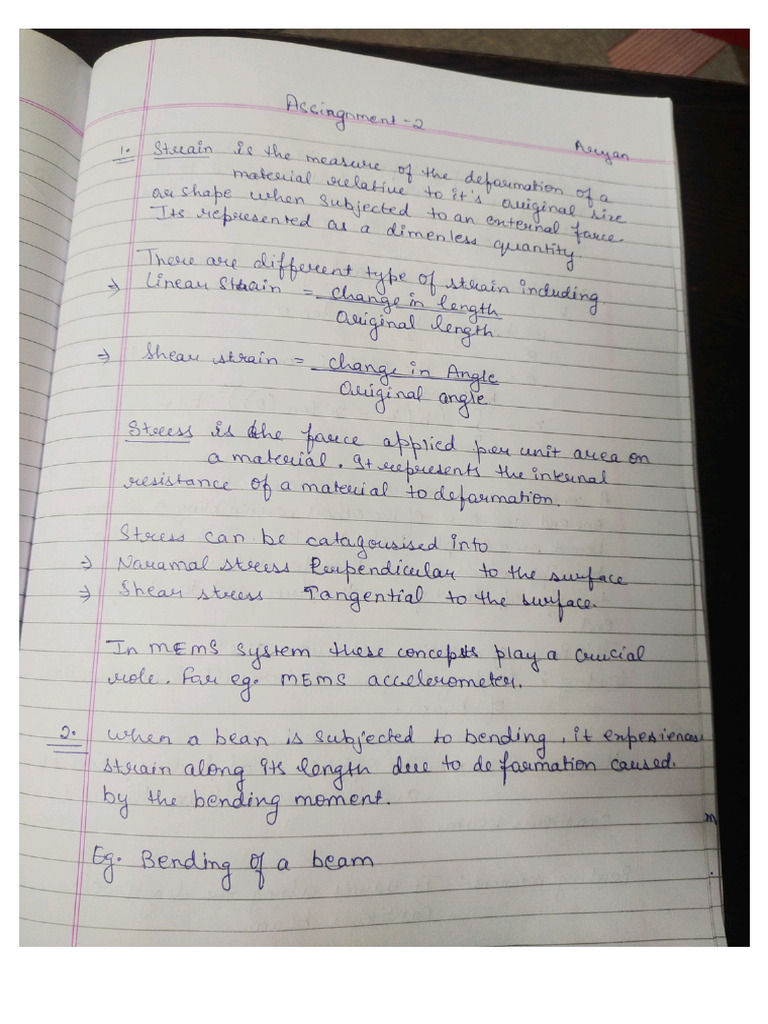 Assingnment -2
Aryan
1. Strain is the measure of the deformation of a
material relative to it's original size
or shape when subjected to an external force.
Its represented as a dimenless quantity.
There are different type of strain including
→ Linear Strain = change in length
Original length.
→ Shear strain = change in Angle
Original angle.
Stress is the force applied per unit area on
a material. It represents the internal
resistance of a material to deformation.
Stress can be catagorisised into
→ Naramal stress Perpendicular to the surface
→ Shear stress Tangential to the surface.
In MEMS system these concepts play a crucial
role. For eg. MEMS accelerometer.
2. When a bean is subjected to bending, it experiences
strain along its length due to deformation caused.
by the bending moment.
Eg. Bending of a beam